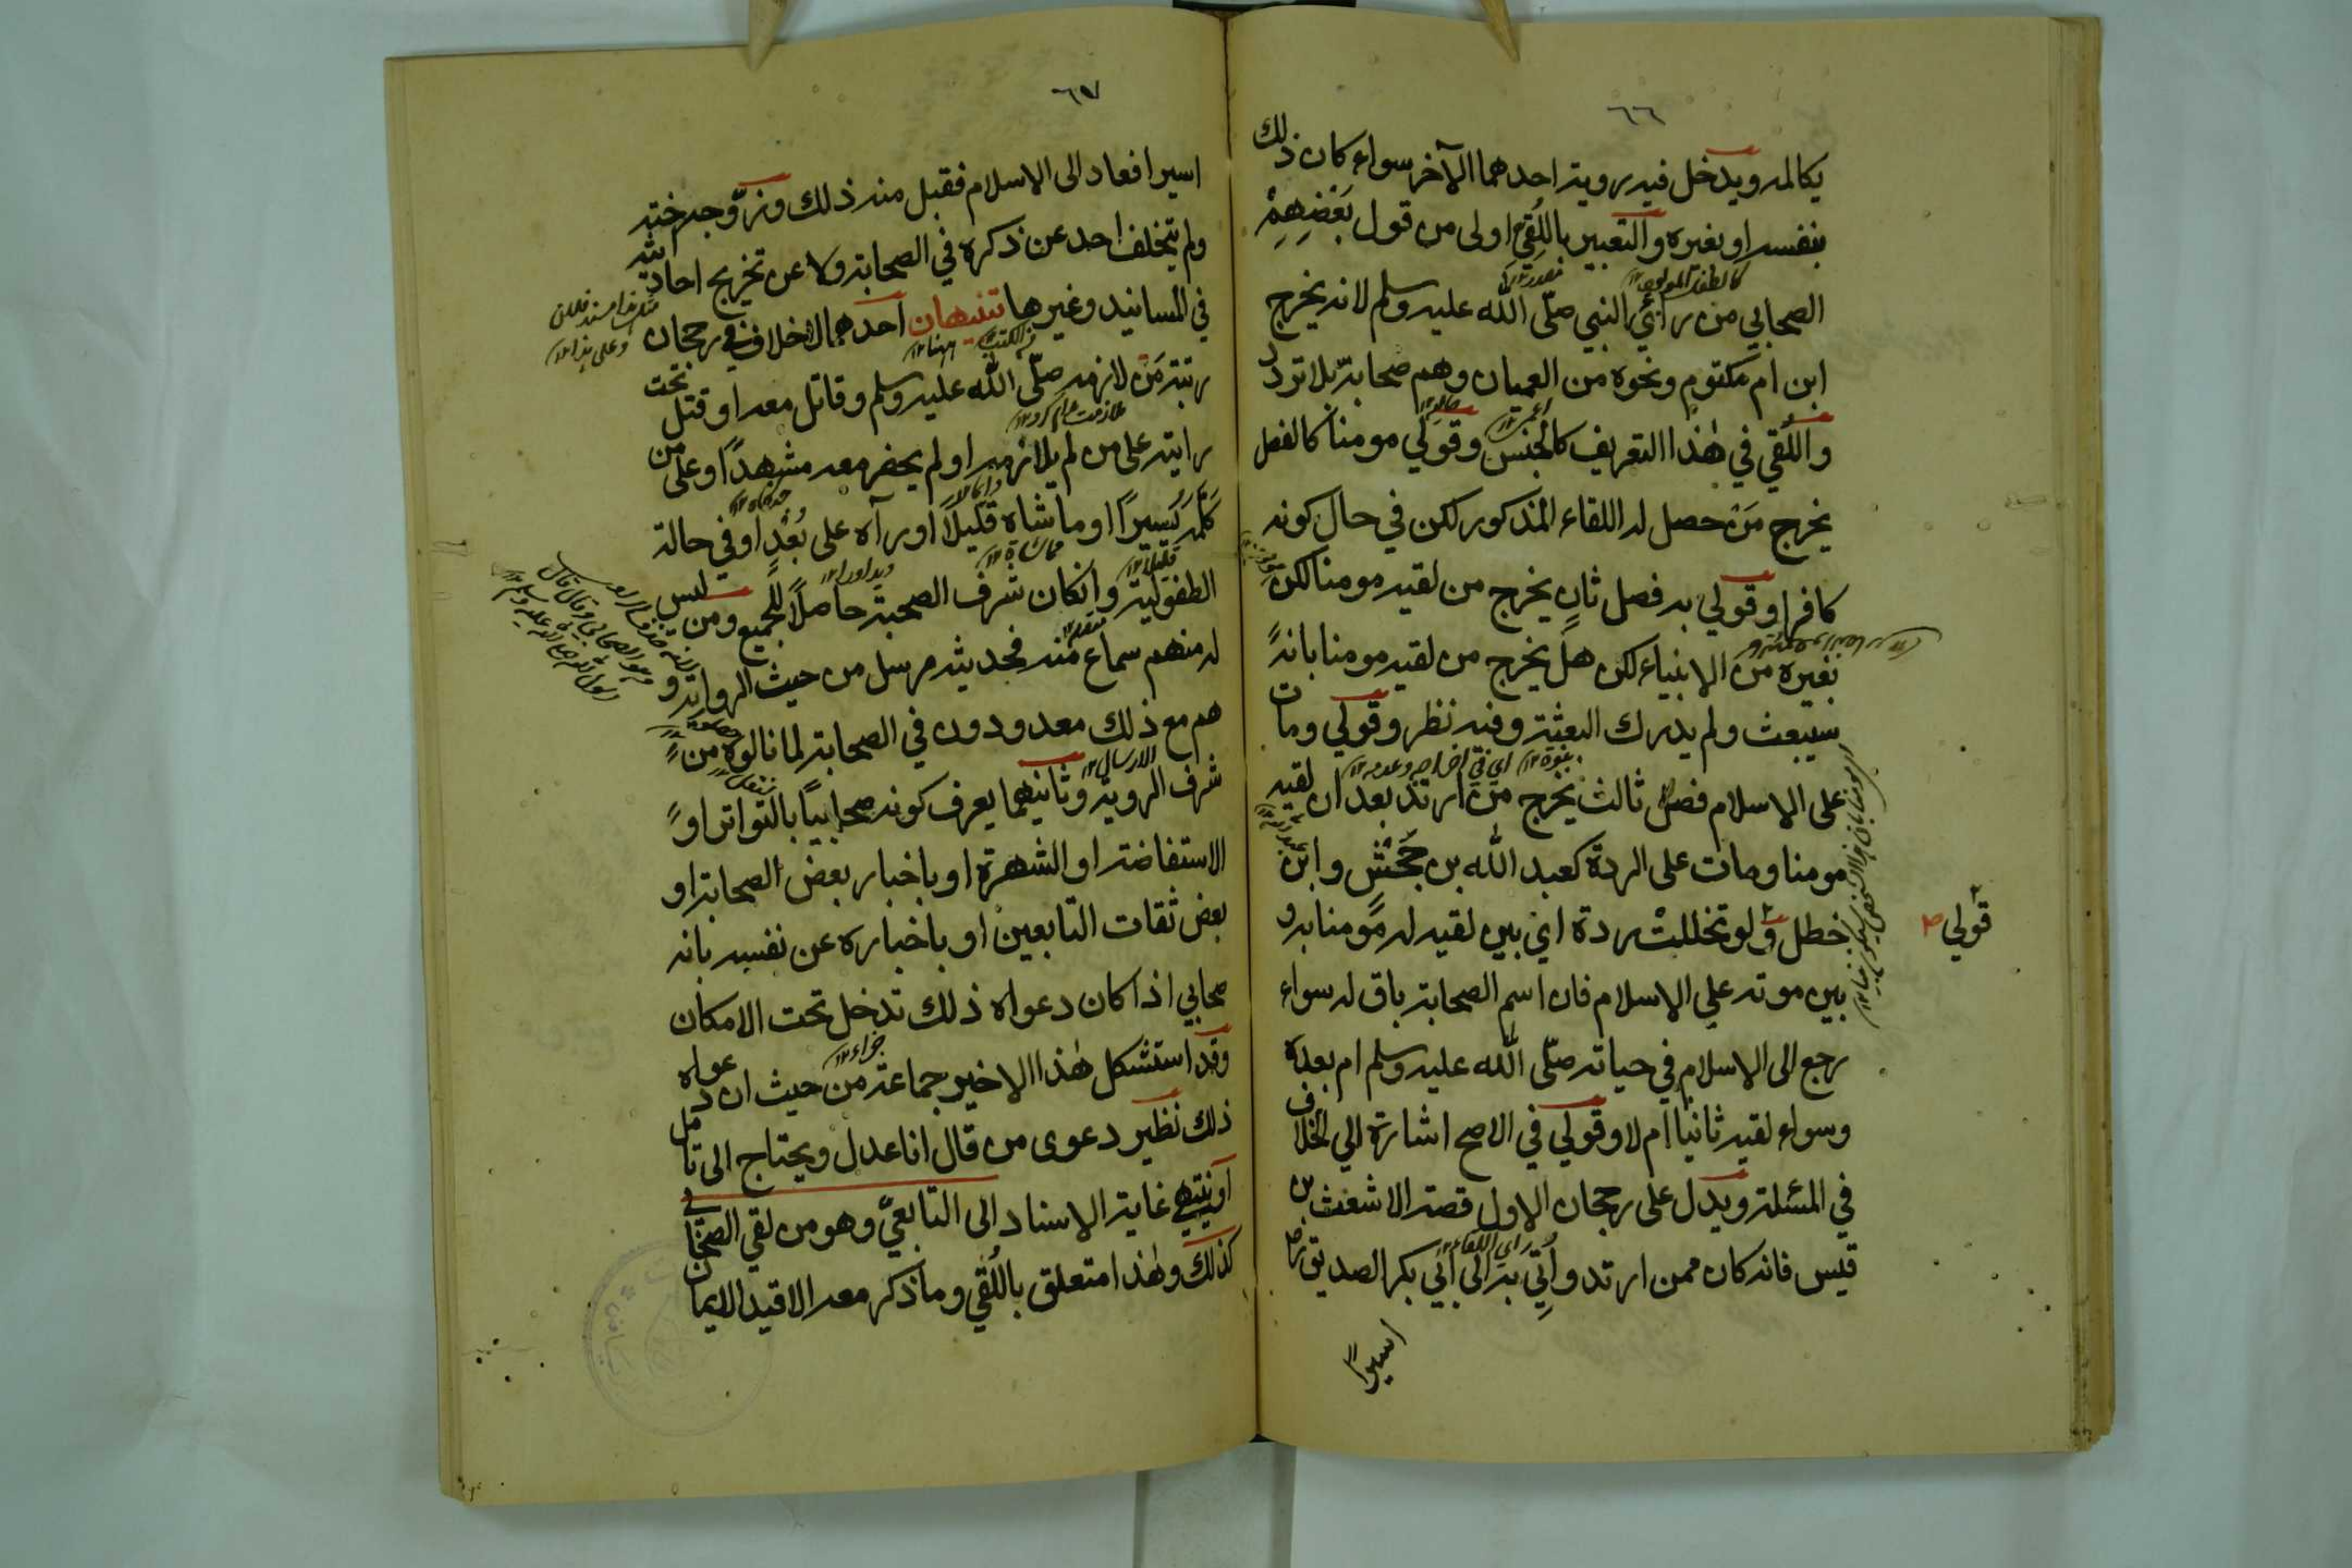 ٦٦
يكالمه ويدخل فيه رويته احدهما الآخر سواء كان ذلك
بنفسه او بغيره والتعبير باللُّقِيّ اولى من قول بَعْضِهِمْ
الصحابي من رأي النبي صلّى الله عليه وسلم لانه يخرج
ابن ام مكتوم ونحوه من العميان وهم صحابة بلا تردد
واللُّقي في هٰذا التعريف كالجنس وقولي مومنا كالفصل
يخرج مَنْ حصل له اللقاء المذكور لكن في حال كونه
كافرا وقولي به فصل ثانٍ يخرج من لقيه مومنا لكن
بغيره من الانبياء لكن هل يخرج من لقيه مومنا بانه
سيبعث ولم يدرك البعثة وفيه نظر وقولي ومات
على الاسلام فصل ثالث يخرج من ارتد بعد ان لقيه
مومنا ومات على الردة كعبد الله بن جَحْشٍ وابن
خطل و لو تخللتْ ردة اي بين لقيه له مومنا به و
قولي
بين موته على الاسلام فان اسم الصحابة باق له سواء
رجع الى الاسلام في حياته صلّى الله عليه وسلم ام بعده
وسواء لقيه ثانيا ام لا وقولي في الاصح اشارة الي الخلاف
في المسئلة ويدل على رجحان الاول قصة الاشعث بن
قيس فانه كان ممن ارتد واُتِي به الى ابي بكر الصديق رض
اسيرا
٦٧
اسيرا فعاد الى الاسلام فقبل منه ذلك وزوّجه اخته
ولم يتخلف احد عن ذكره في الصحابة ولا عن تخريج احاديثه
في المسانيد وغيرها تنبيهان احدهما لا خلاف في رجحان
رتبة مَنْ لازمه صلّى الله عليه وسلم وقاتل معه او قتل تحت
رايته على من لم يلازمه او لم يحضر معه مشهدًا وعلى من
كلّمه يسيرًا او ماشاه قليلًا او رآه على بُعْدٍ او في حالة
الطفولية وانكان شرف الصحبة حاصلًا للجميع ومن ليس
له منهم سماع منه فحديثه مرسل من حيث الرواية و
هم مع ذلك معدودون في الصحابة لما نالوه من
شرف الروية وثانيهما يعرف كونه صحابيًا بالتواتر او
الاستفاضة او الشهرة او باخبار بعض الصحابة او
بعض ثقات التابعين او باخباره عن نفسه بانه
صحابي اذا كان دعواه ذلك تدخل تحت الامكان
وقد استشكل هٰذا الاخير جماعة من حيث ان دعواه
ذلك نظير دعوى من قال انا عدل ويحتاج الى تامل
او ينتهي غاية الاسناد الى التابعيّ وهو من لقي الصحابي
كذلك وهٰذا متعلق باللُّقي وما ذكر معه الا قيد الايمان